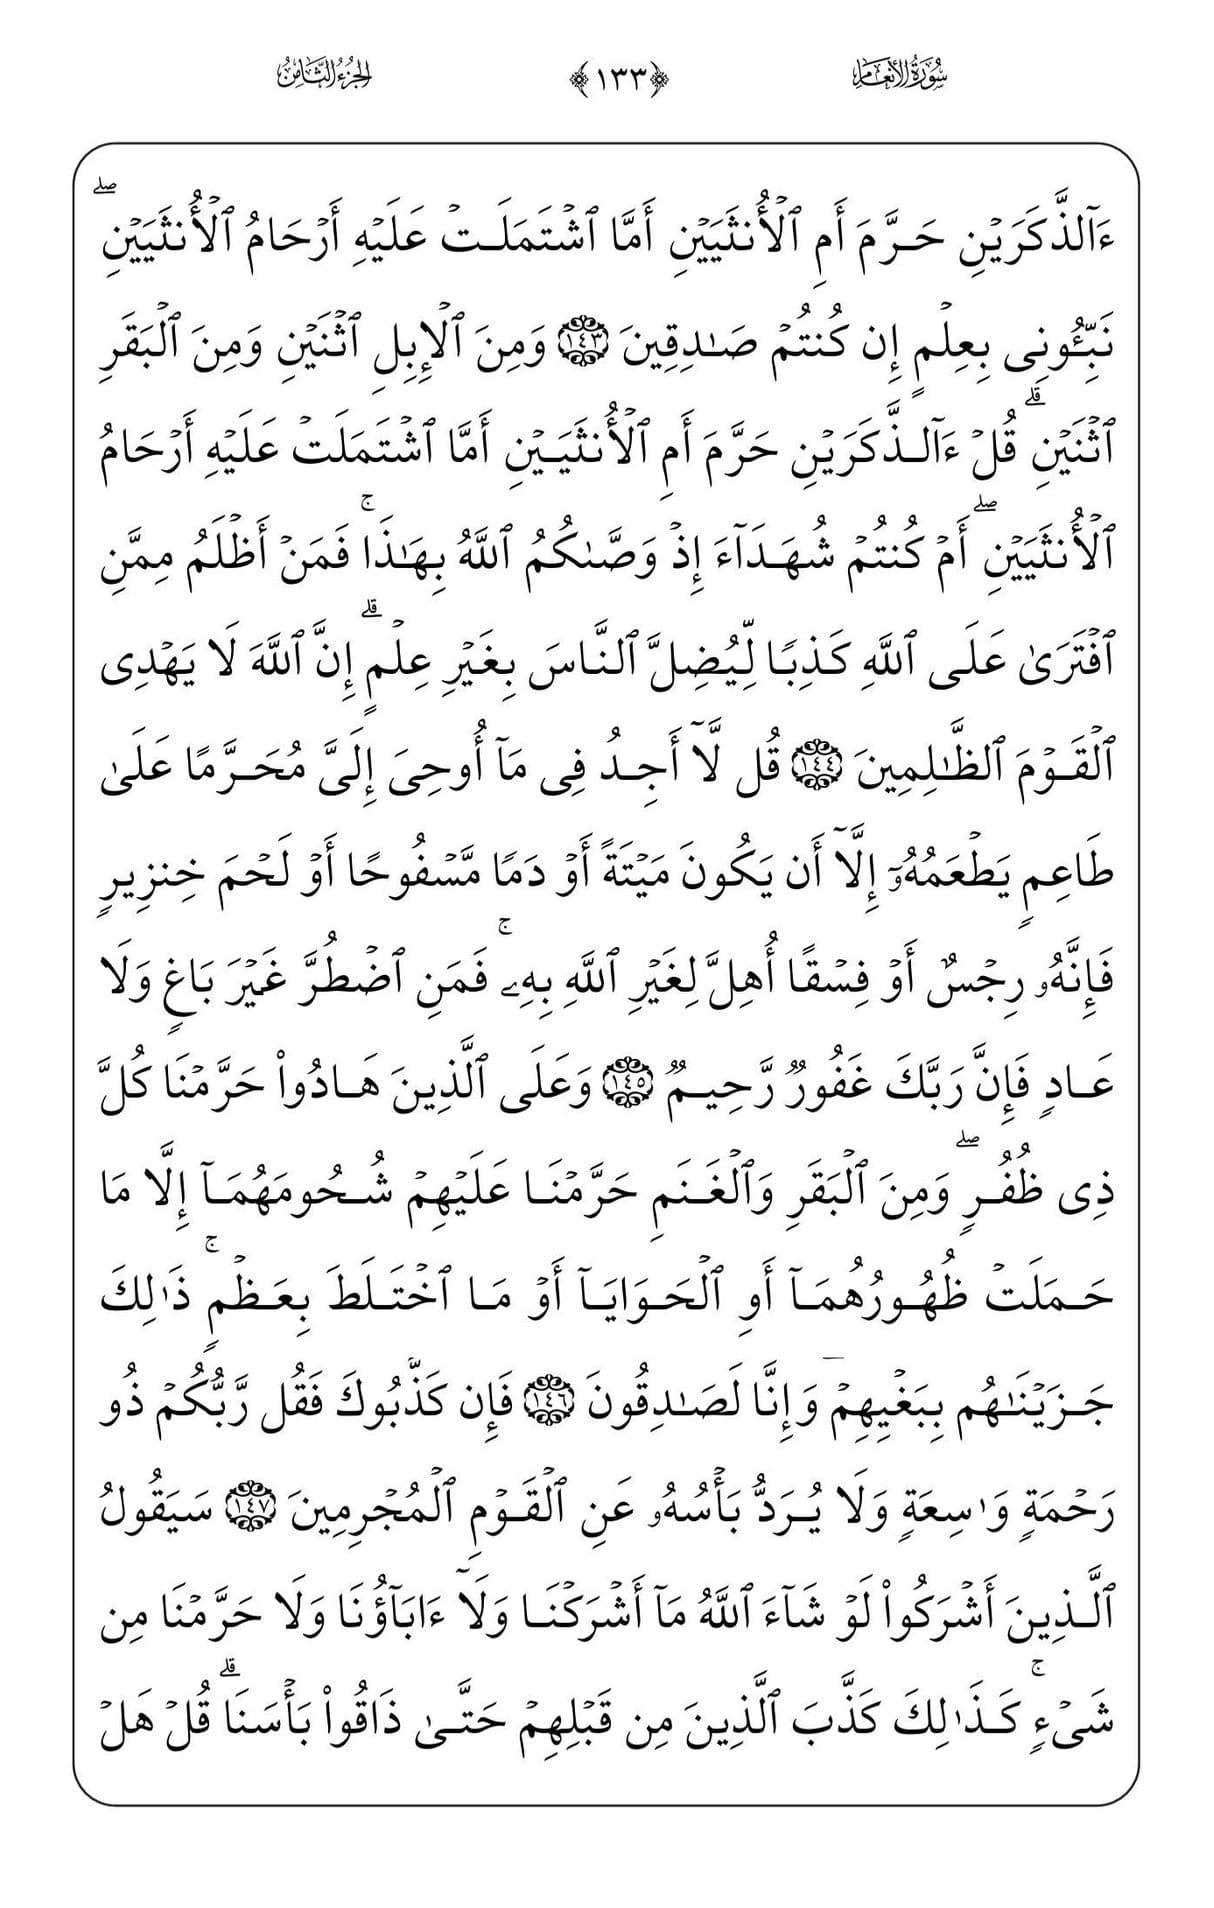 سُورَةُ الأَنْعَامِ ﴿١٣٣﴾ الجُزْءُ الثَّامِنُ
ءَآلذَّكَرَيۡنِ حَرَّمَ أَمِ ٱلۡأُنثَيَيۡنِ أَمَّا ٱشۡتَمَلَتۡ عَلَيۡهِ أَرۡحَامُ ٱلۡأُنثَيَيۡنِۖ
نَبِّـُٔونِى بِعِلۡمٍ إِن كُنتُمۡ صَـٰدِقِينَ ١٤٣ وَمِنَ ٱلۡإِبِلِ ٱثۡنَيۡنِ وَمِنَ ٱلۡبَقَرِ
ٱثۡنَيۡنِۗ قُلۡ ءَآلذَّكَرَيۡنِ حَرَّمَ أَمِ ٱلۡأُنثَيَيۡنِ أَمَّا ٱشۡتَمَلَتۡ عَلَيۡهِ أَرۡحَامُ
ٱلۡأُنثَيَيۡنِۖ أَمۡ كُنتُمۡ شُهَدَآءَ إِذۡ وَصَّىٰكُمُ ٱللَّهُ بِهَـٰذَاۚ فَمَنۡ أَظۡلَمُ مِمَّنِ
ٱفۡتَرَىٰ عَلَى ٱللَّهِ كَذِبًا لِّيُضِلَّ ٱلنَّاسَ بِغَيۡرِ عِلۡمٍۗ إِنَّ ٱللَّهَ لَا يَهۡدِى
ٱلۡقَوۡمَ ٱلظَّـٰلِمِينَ ١٤٤ قُل لَّآ أَجِدُ فِى مَآ أُوحِىَ إِلَىَّ مُحَرَّمًا عَلَىٰ
طَاعِمٍ يَطۡعَمُهُۥٓ إِلَّآ أَن يَكُونَ مَيۡتَةً أَوۡ دَمًا مَّسۡفُوحًا أَوۡ لَحۡمَ خِنزِيرٍ
فَإِنَّهُۥ رِجۡسٌ أَوۡ فِسۡقًا أُهِلَّ لِغَيۡرِ ٱللَّهِ بِهِۦۚ فَمَنِ ٱضۡطُرَّ غَيۡرَ بَاغٍ وَلَا
عَادٍ فَإِنَّ رَبَّكَ غَفُورٌ رَّحِيمٌ ١٤٥ وَعَلَى ٱلَّذِينَ هَادُواْ حَرَّمۡنَا كُلَّ
ذِى ظُفُرٍۖ وَمِنَ ٱلۡبَقَرِ وَٱلۡغَنَمِ حَرَّمۡنَا عَلَيۡهِمۡ شُحُومَهُمَآ إِلَّا مَا
حَمَلَتۡ ظُهُورُهُمَآ أَوِ ٱلۡحَوَايَآ أَوۡ مَا ٱخۡتَلَطَ بِعَظۡمٍۚ ذَٰلِكَ
جَزَيۡنَـٰهُم بِبَغۡيِهِمۡۖ وَإِنَّا لَصَـٰدِقُونَ ١٤٦ فَإِن كَذَّبُوكَ فَقُل رَّبُّكُمۡ ذُو
رَحۡمَةٍ وَٰسِعَةٍ وَلَا يُرَدُّ بَأۡسُهُۥ عَنِ ٱلۡقَوۡمِ ٱلۡمُجۡرِمِينَ ١٤٧ سَيَقُولُ
ٱلَّذِينَ أَشۡرَكُواْ لَوۡ شَآءَ ٱللَّهُ مَآ أَشۡرَكۡنَا وَلَآ ءَابَآؤُنَا وَلَا حَرَّمۡنَا مِن
شَىۡءٍۚ كَذَٰلِكَ كَذَّبَ ٱلَّذِينَ مِن قَبۡلِهِمۡ حَتَّىٰ ذَاقُواْ بَأۡسَنَاۗ قُلۡ هَلۡ